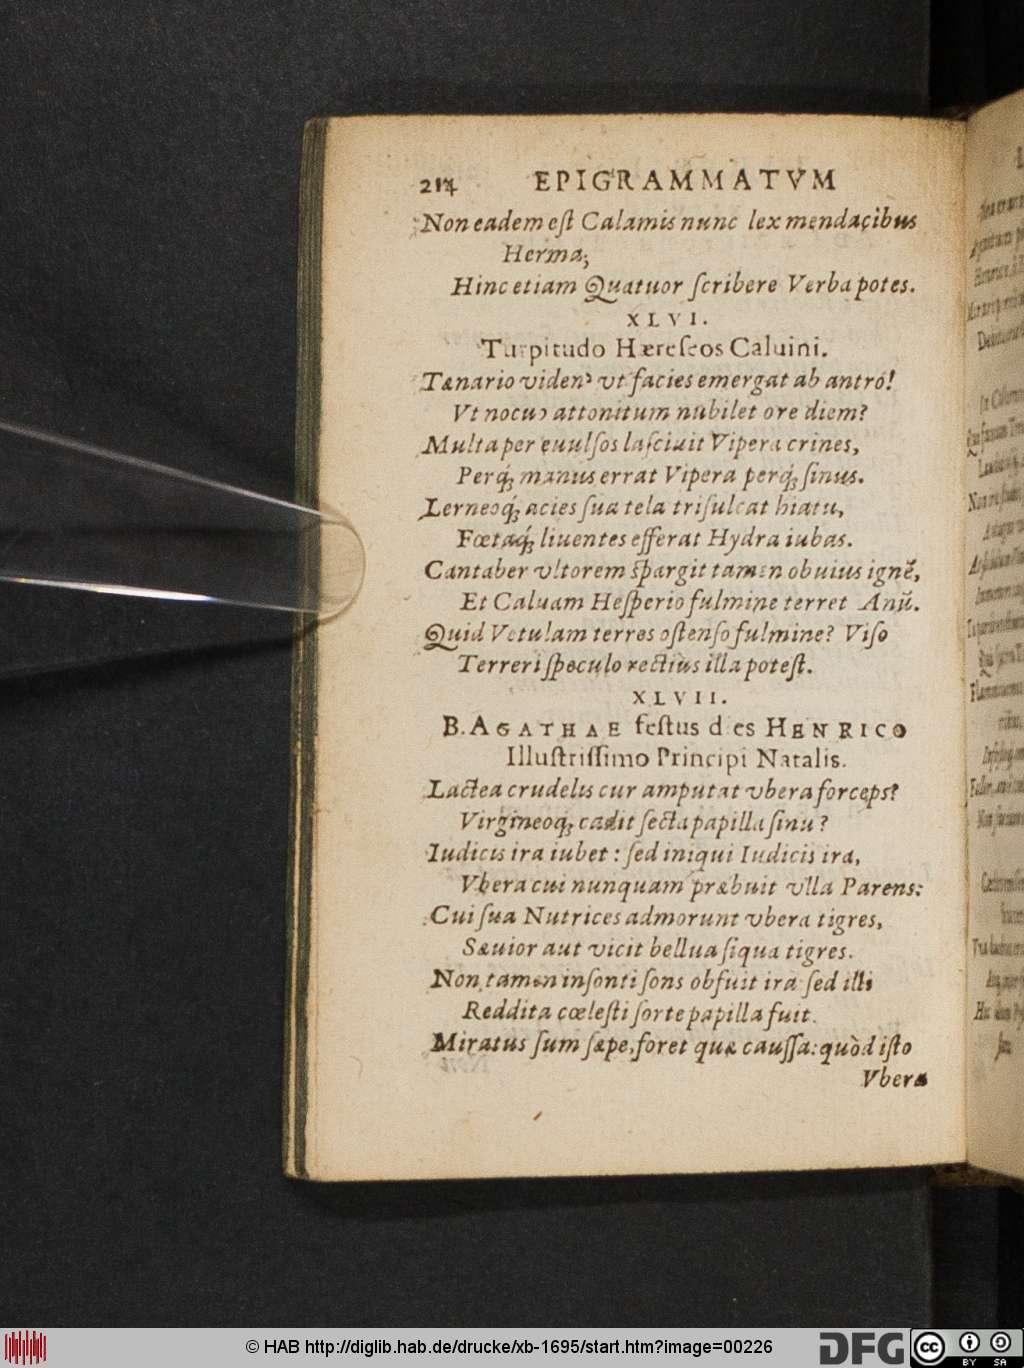 214 EPIGRAMMATVM
Non eadem eſt Calamis nunc lex mendacibus
Hermæ;
Hinc etiam Quatuor ſcribere Verba potes.
XLVI.
Turpitudo Hæreſeos Caluini.
Tænario viden' vt facies emergat ab antro!
Vt nocuo attonitum nubilet ore diem?
Multa per euulſos laſciuit Vipera crines,
Perq́; manus errat Vipera perq́; ſinus.
Lerneoq́; acies ſua tela triſulcat hiatu,
Fœtaq́; liuentes efferat Hydra iubas.
Cantaber vltorem ſpargit tamen obuius ignē,
Et Caluam Heſperio fulmine terret Anū.
Quid Vetulam terres oſtenſo fulmine? Viſo
Terreri ſpeculo rectius illa poteſt.
XLVII.
B. AGATHAE feſtus dies HENRICO
Illuſtriſſimo Principi Natalis.
Lactea crudelis cur amputat vbera forceps?
Virgineoq; cadit ſecta papilla ſinu?
Iudicis ira iubet: ſed iniqui Iudicis ira,
Vbera cui nunquam præbuit vlla Parens:
Cui ſua Nutrices admorunt vbera tigres,
Sæuior aut vicit bellua ſiqua tigres.
Non tamen inſonti ſons obfuit ira: ſed illi
Reddita cœleſti ſorte papilla fuit.
Miratus ſum ſæpe, foret quæ cauſſa: quòd iſto
Vbera
© HAB http://diglib.hab.de/drucke/xb-1695/start.htm?image=00226
DFG
cc
BY SA